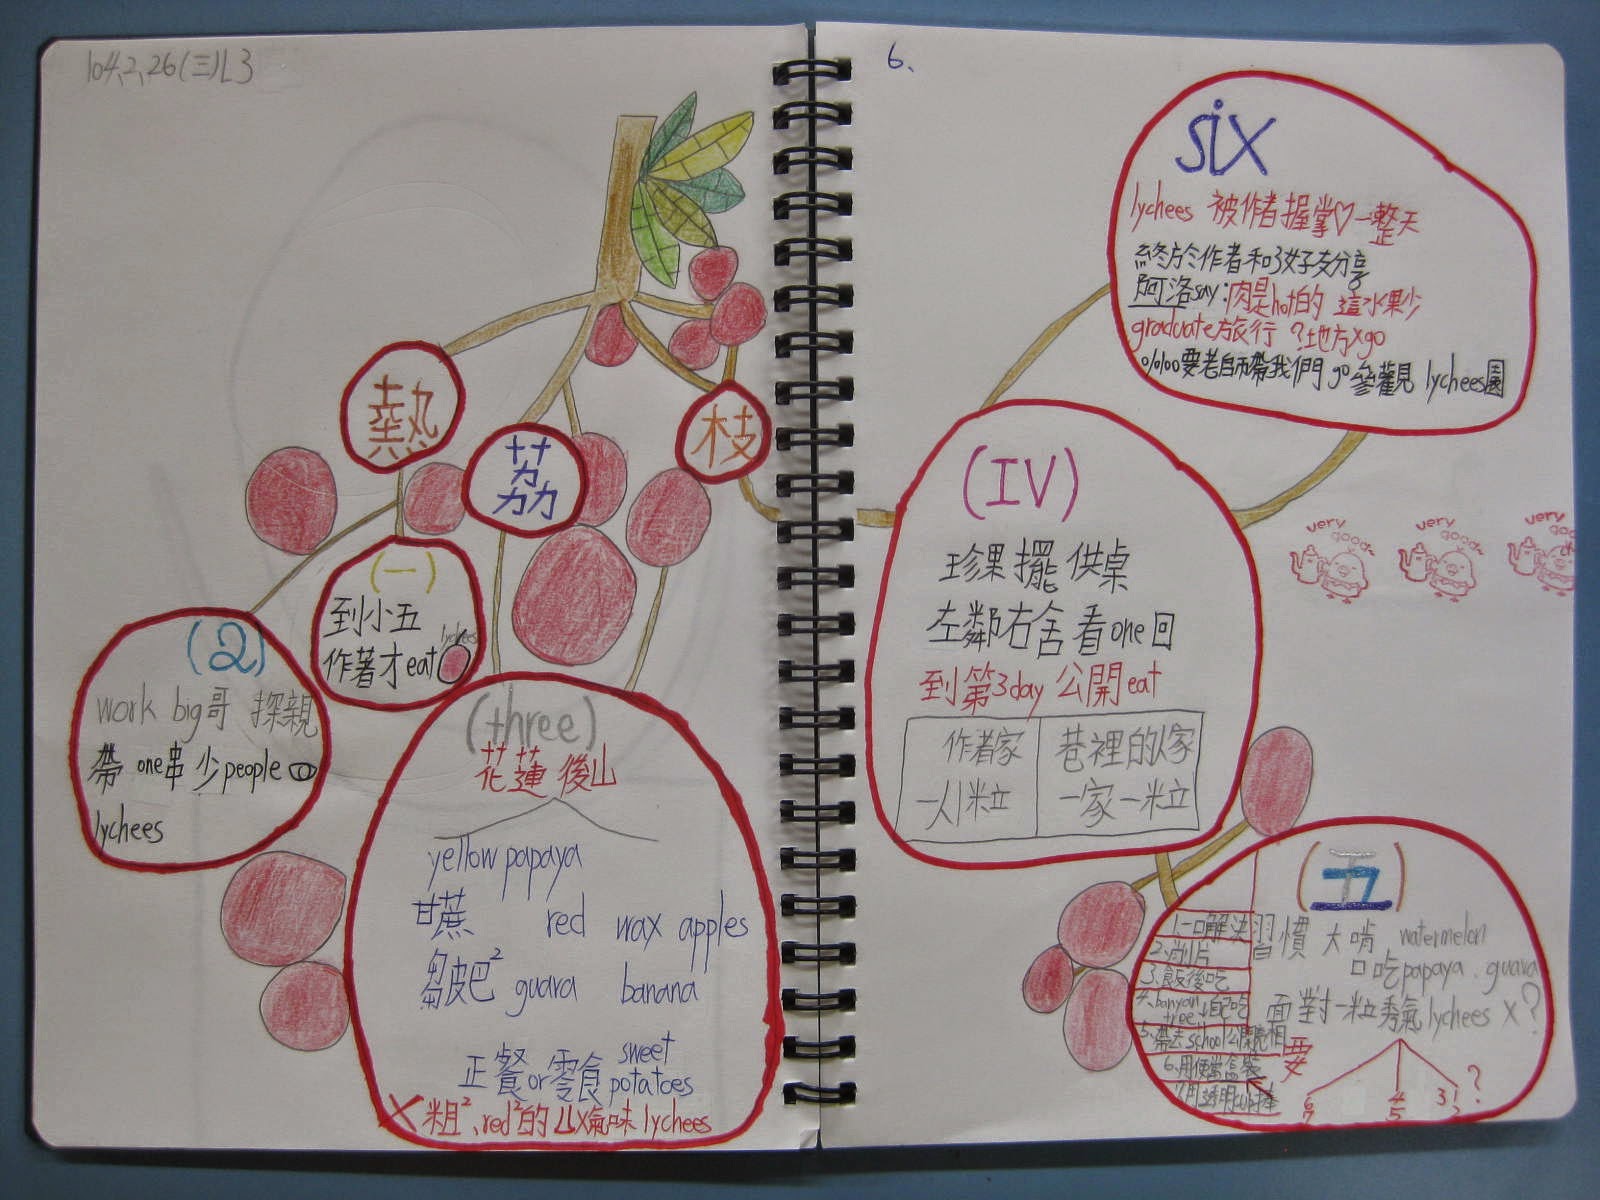 104、2、26(三)L3
熱
荔
枝
(一)
到小五
作著才eat
lychees
(2)
work big哥 探親
帶 one串 少people
lychees
(three)
花蓮 後山
yellow papaya
甘蔗 red wax apples
芭² guava banana
正餐or零食 sweet potatoes
粗²、red²的 ㄩx氣味 lychees
6、
six
lychees 被作者握掌♡一整天
終於作者和3好友分享
阿洛say:肉是hot的 這水果少
graduate旅行 ?地方x go
要老師帶我們 go參觀 lychees園
(IV)
珍果擺供桌
左鄰右舍看one回
到第3day 公開eat
作者家 巷裡的人家
一人1粒 一家一粒
very good
very good
very good
(五)
習慣 大啃 watermelon
口吃papaya、guava
面對一粒秀氣lychees x?
1、一口解決
2、削片
3、飯後吃
4、banyan tree↓自己吃
5、帶去school公開亮相
6、用便當盒裝
7、用透明cup捧
要
6 4 3 1 ?
7 5 2